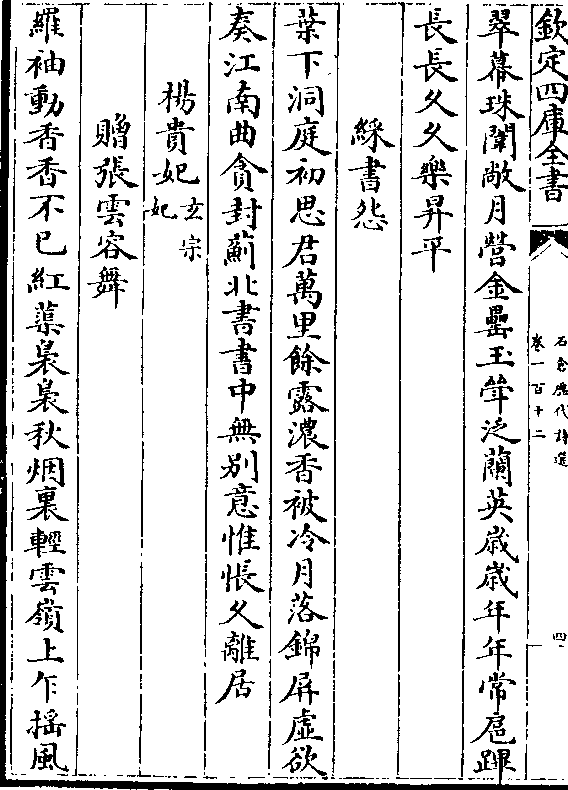 欽定四庫全書
石倉歷代詩選
卷一百十二
四
翠幕珠闈敞月營金罍玉斝泛蘭英歲歲年年常扈蹕
長長久久樂昇平
綵書怨
葉下洞庭初思君萬里餘露濃香被冷月落錦屏虛欲
奏江南曲貪封薊北書書中無别意惟悵久離居
楊貴妃玄宗妃
贈張雲容舞
羅袖動香香不已紅蕖裊裊秋烟裏輕雲嶺上乍揺風